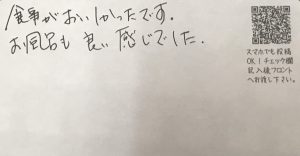 食事がおいしかったです。
お風呂も良い感じでした.
スマホでも投稿
OK！チェック欄
記入後フロント
へお渡し下さい。